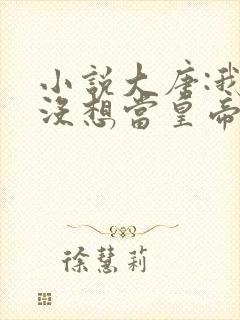 小說大唐:我
沒想當皇帝
徐慧莉